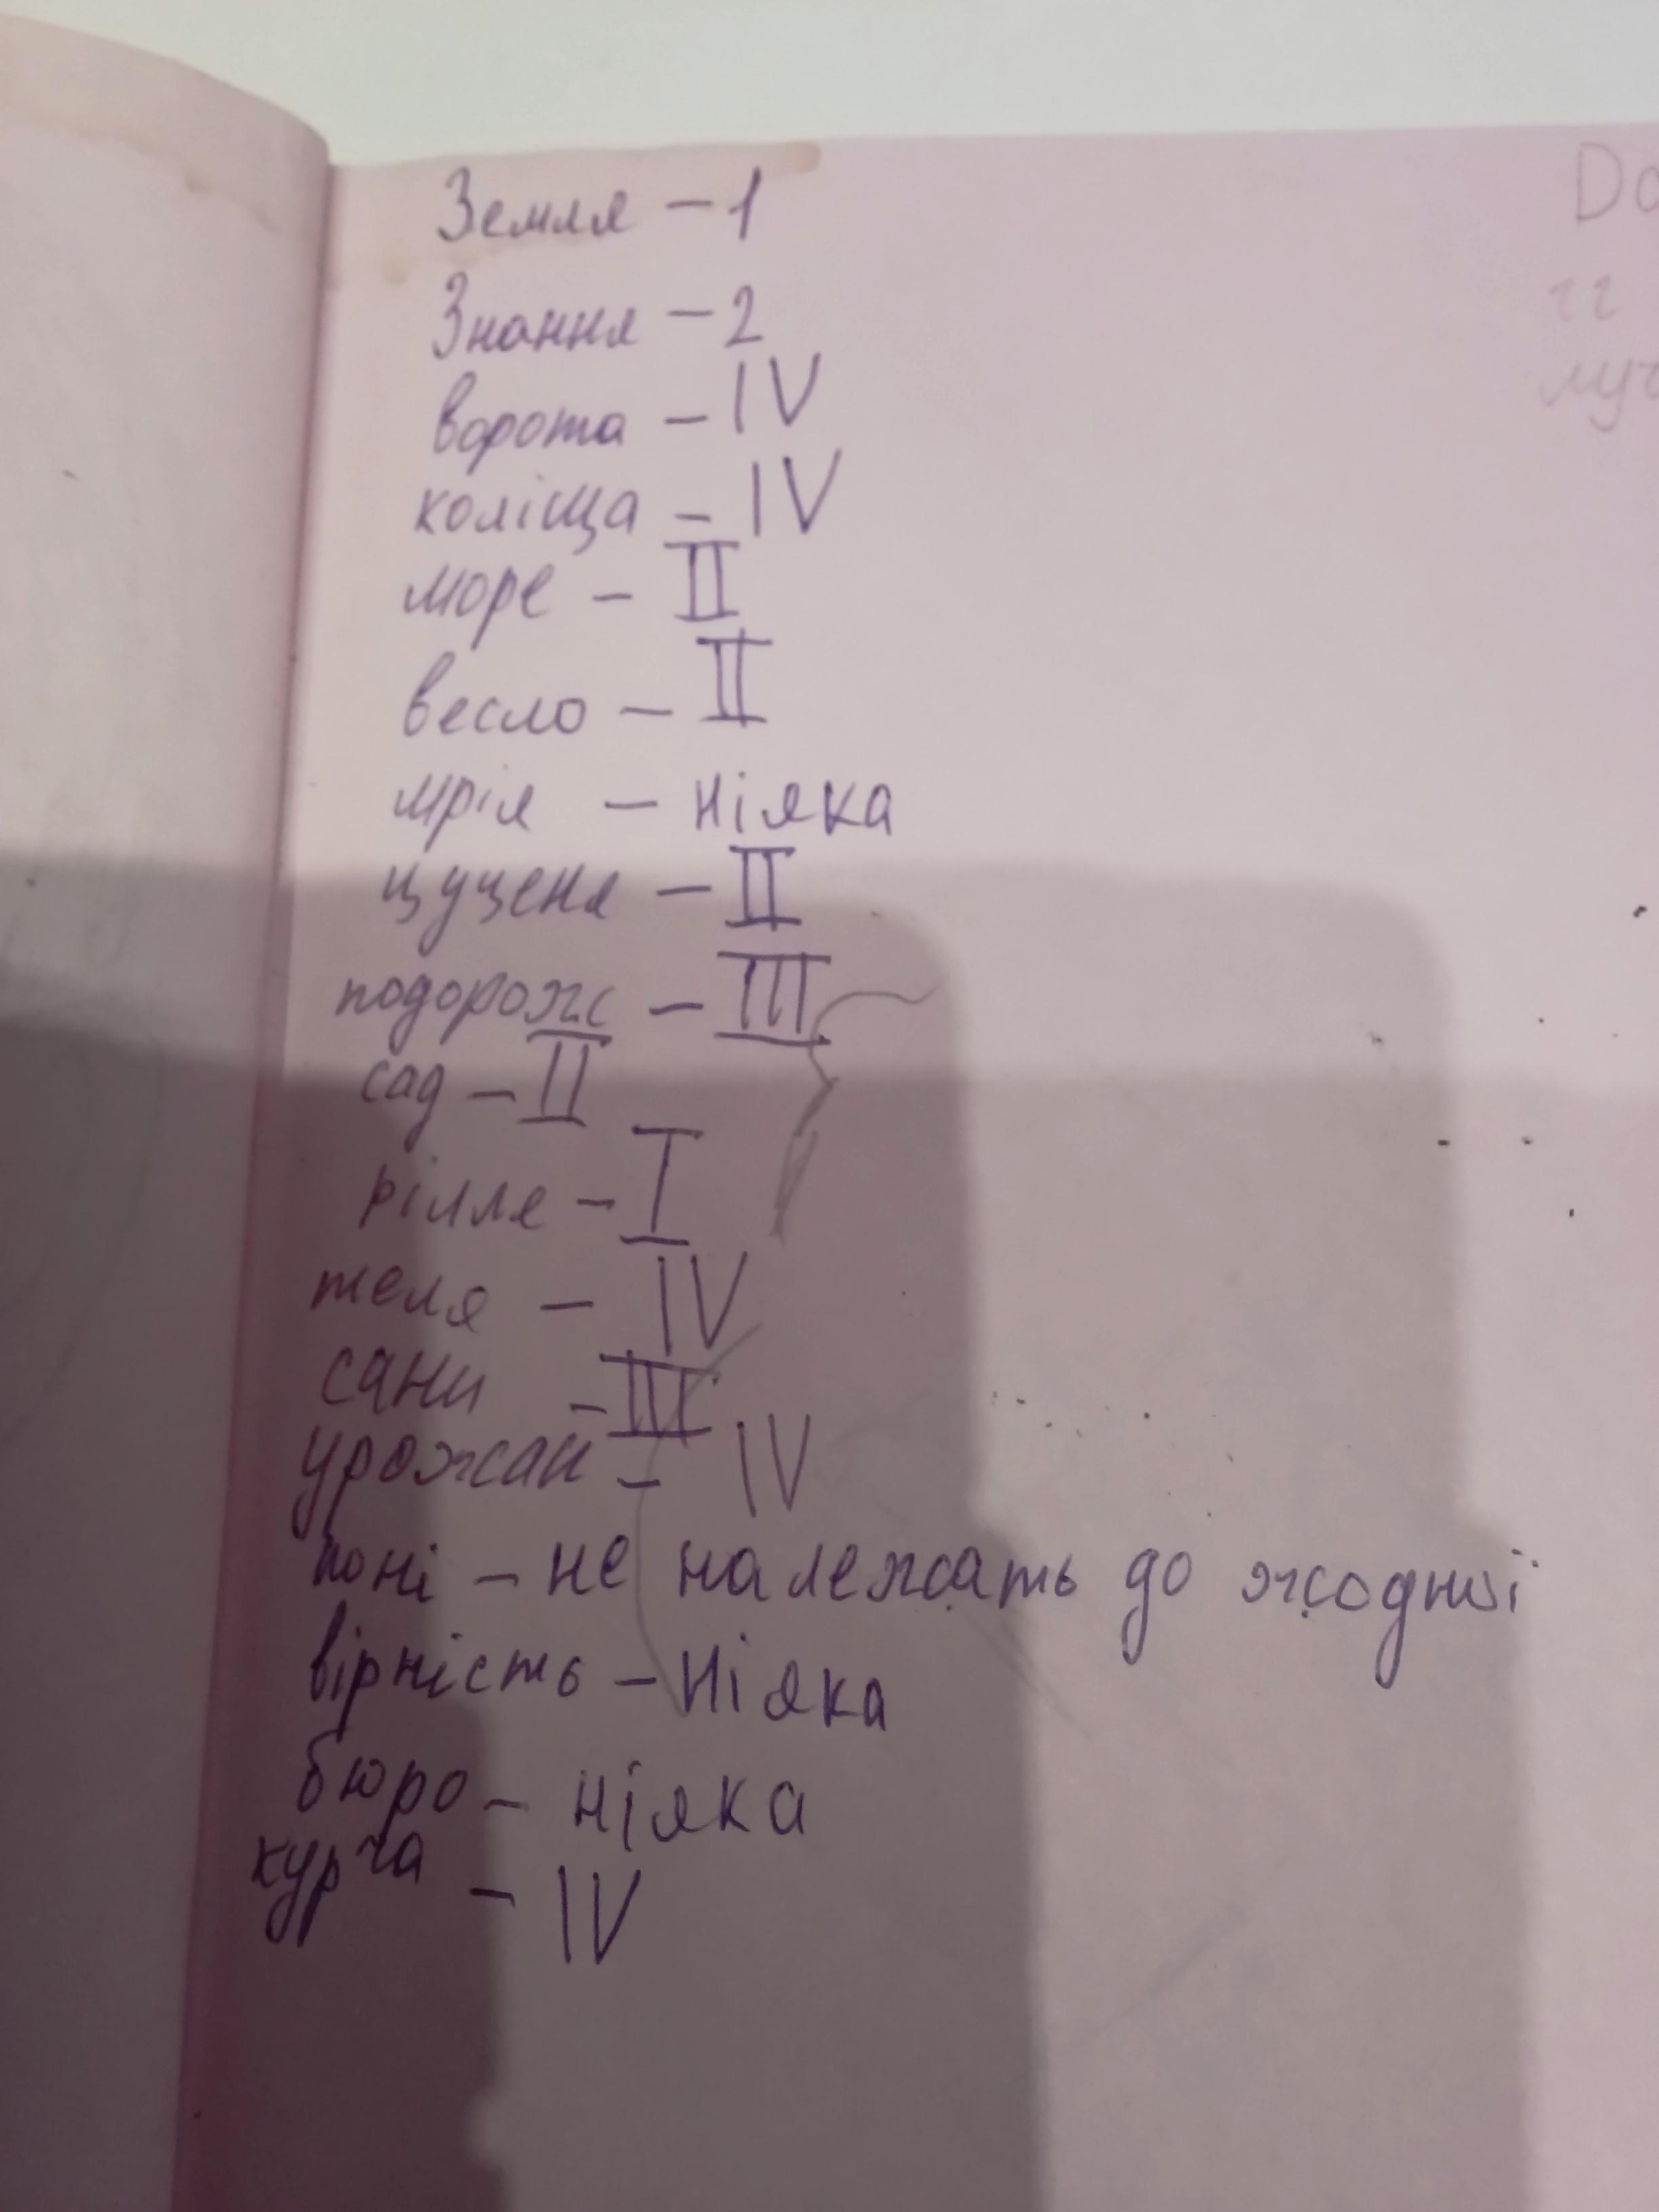 Земля – 1
Знання – 2
ворота – IV
коліща – IV
море – II
весло – II
мрія – ніяка
цуценя – II
подорож – III
сад – II
рілля – I
теля – IV
сани – III
урожай – IV
поні – не належать до жодної
вірність – Ніяка
бюро – ніяка
курча – IV